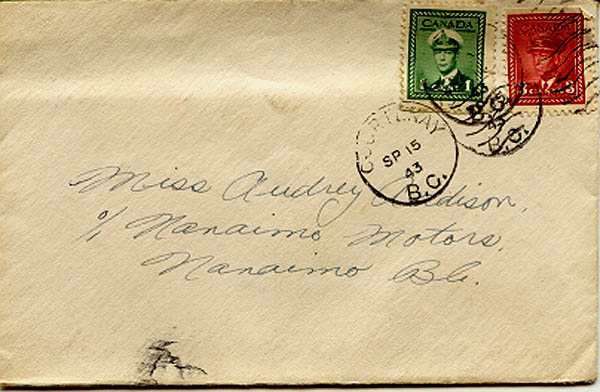 CANADA
CANADA
1
3
COURTENAY
SP 15
43
B.C.
43
B.C.
Miss Audrey Addison,
c/o Nanaimo Motors,
Nanaimo B.C.